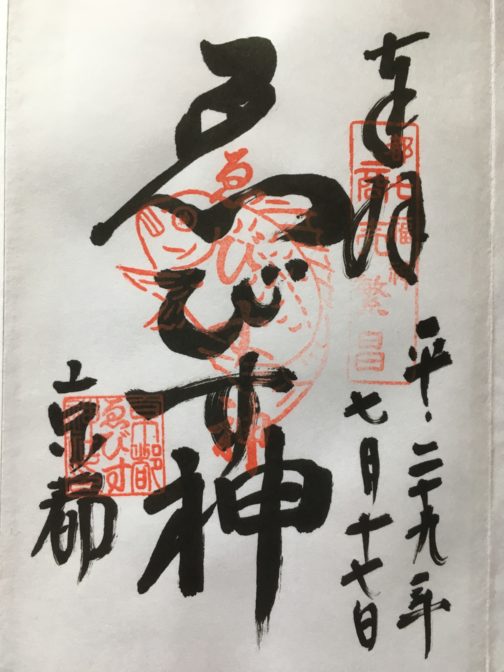 奉拝
都七福神
商売繁昌
平・二十九年
七月十七日
ゑびす神
ゑびす神
京都
京都
ゑびす